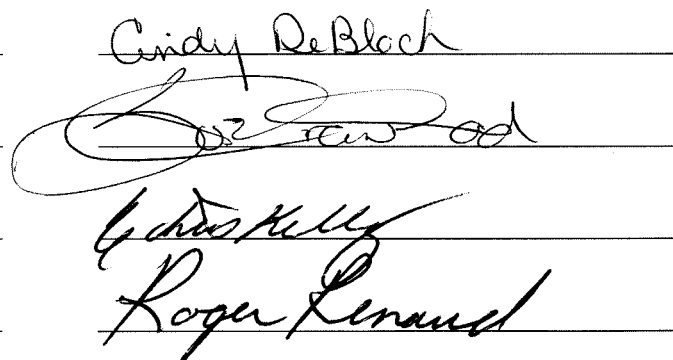 Cindy DeBlock
Chris Kelly
Roger Renaud